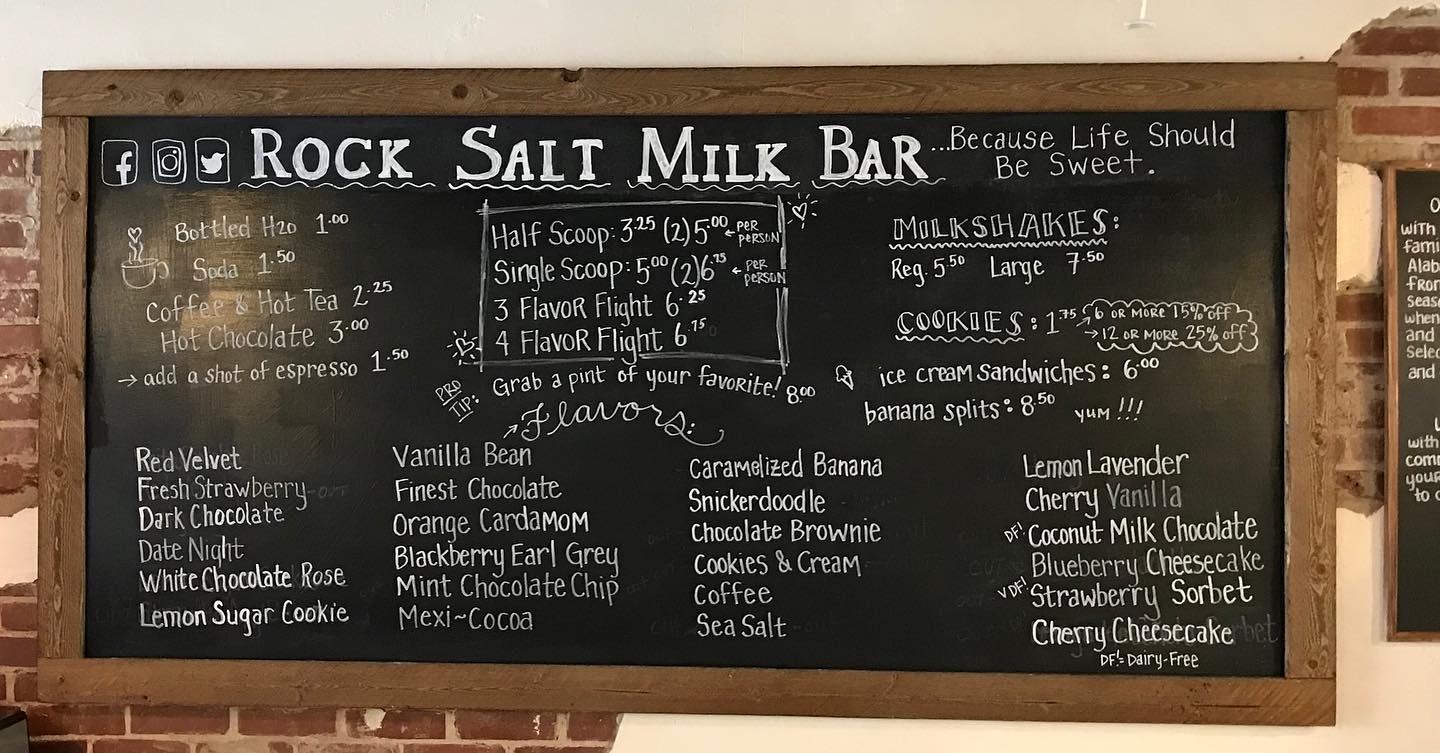 ROCK SALT MILK BAR ...Because Life Should
Be Sweet.
Bottled H2O 1.00
Soda 1.50
Coffee & Hot Tea 2.25
Hot Chocolate 3.00
→ add a shot of espresso 1.50
Half Scoop: 3.25 (2) 5.00 ← PER PERSON
Single Scoop: 5.00 (2) 6.75 ← PER PERSON
3 Flavor Flight 6.25
4 Flavor Flight 6.75
PRO TIP: Grab a pint of your favorite! 8.00
MILKSHAKES:
Reg. 5.50 Large 7.50
COOKIES: 1.75 → 6 OR MORE 15% off
→ 12 OR MORE 25% off
ice cream sandwiches: 6.00
banana splits: 8.50 yum!!!
→ Flavors:
Red Velvet
Fresh Strawberry
Dark Chocolate
Date Night
White Chocolate Rose
Lemon Sugar Cookie
Vanilla Bean
Finest Chocolate
Orange Cardamom
Blackberry Earl Grey
Mint Chocolate Chip
Mexi~Cocoa
Caramelized Banana
Snickerdoodle
Chocolate Brownie
Cookies & Cream
Coffee
Sea Salt
Lemon Lavender
Cherry Vanilla
DF! Coconut Milk Chocolate
Blueberry Cheesecake
VDF! Strawberry Sorbet
Cherry Cheesecake
DF! = Dairy-Free
with
fami
Alaba
from
seas
when
and
Selec
and
with
comm
your
to